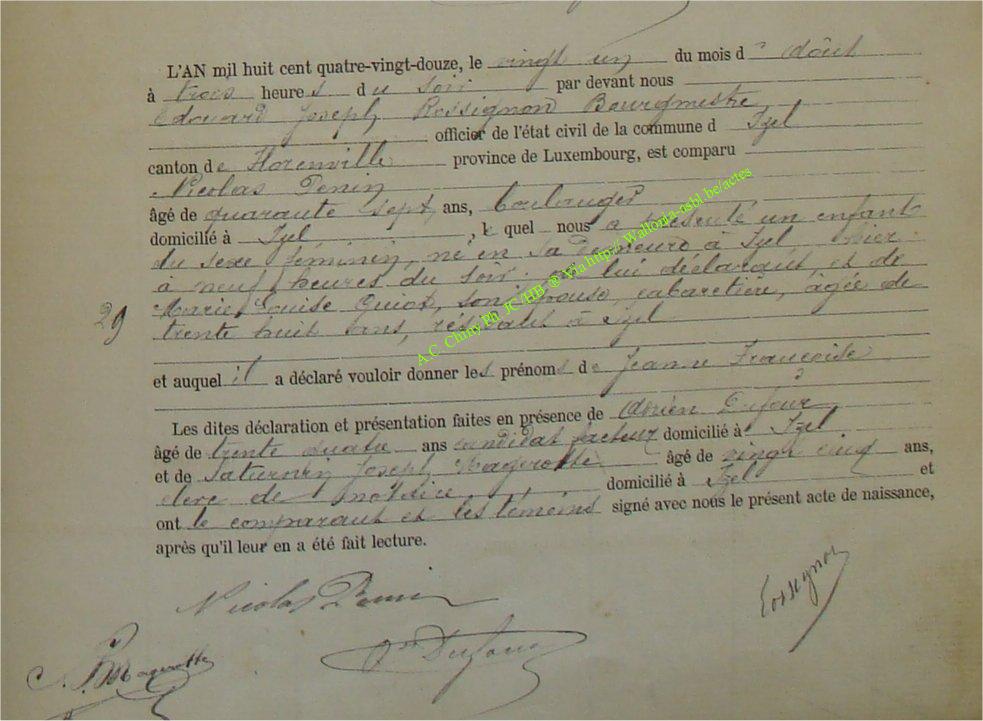 L'AN mil huit cent quatre-vingt-douze, le vingt un du mois d' Août
à trois heures du soir par devant nous
Edouard Joseph Rossignon Bourgmestre
officier de l'état civil de la commune d Izel
canton de Florenville province de Luxembourg, est comparu
Nicolas Penin
âgé de quarante sept ans, boulanger
domicilié à Izel , le quel nous a présenté un enfant
du sexe féminin, né en sa demeure à Izel, hier
à neuf heures du soir, de lui déclarant et de
Marie Louise Quiot, son épouse, cabaretière, âgée de
29 trente huit ans, résidant à Izel
et auquel il a déclaré vouloir donner les prénoms de Jeanne Françoise
Les dites déclaration et présentation faites en présence de Adrien Dufour
âgé de trente quatre ans candidat facteur domicilié à Izel
et de Saturnin Joseph Magerotte âgé de vingt cinq ans,
clerc de notaire domicilié à Izel et
ont le comparant et les témoins signé avec nous le présent acte de naissance,
après qu'il leur en a été fait lecture.
Nicolas Penin
Rossignon
Magerotte
Dufour
A.C. Chiny Ph JC/HB @ Via http:/ Wallonia-asbl.be/actes